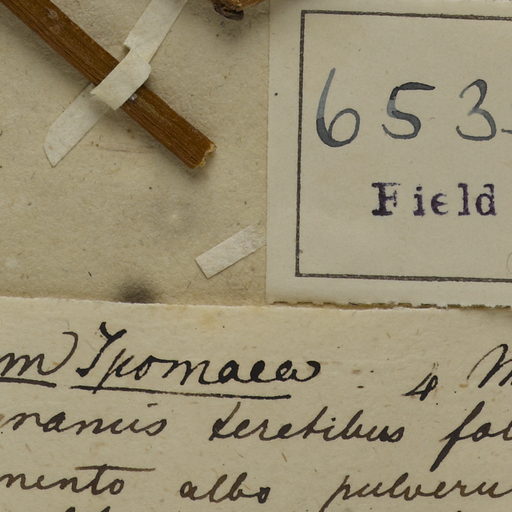 653
Field
m Ipomaea . 4 M
gnamis teretibus fol
mento albo pulveru